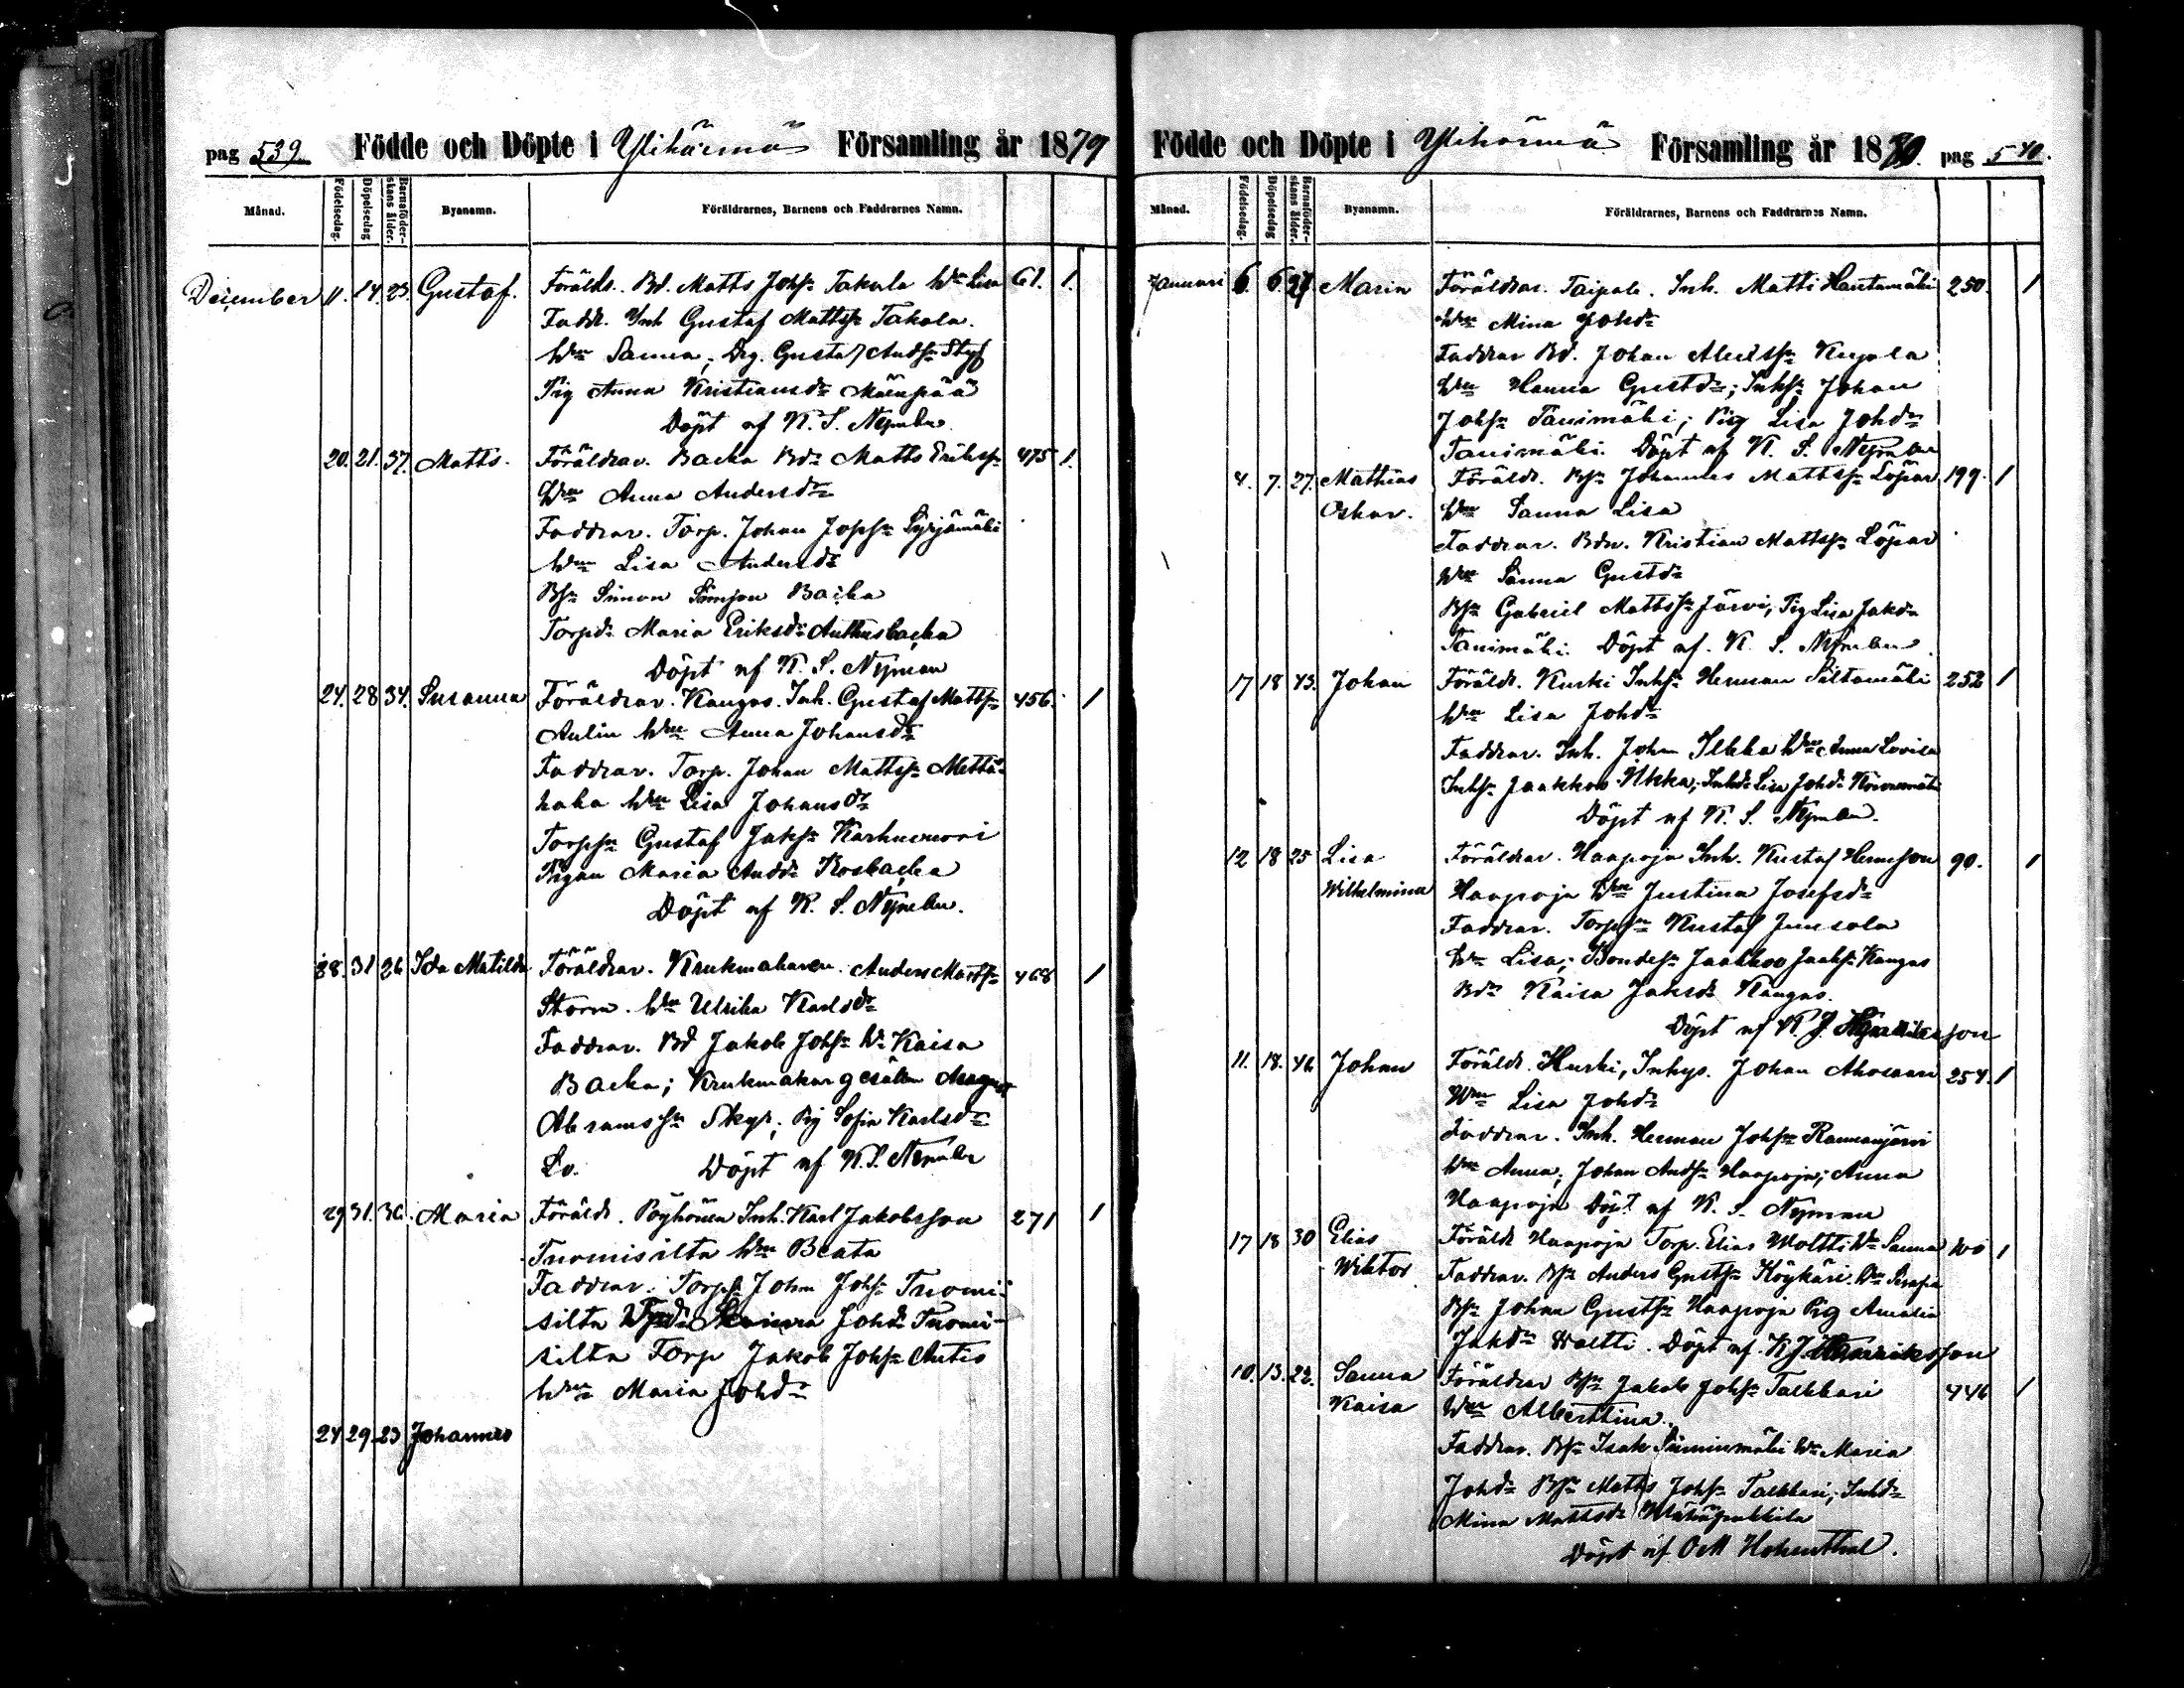 pag 539. Födde och Döpte i Ylihärmä Församling år 1879
Månad. Födelsedag. Döpelsedag Barnaföder-skans ålder. Byanamn. Föräldrarnes, Barnens och Faddrarnes Namn.
December 11. 14. 23. Gustaf. Föräld. Bd. Matts Johss Takala hu Lisa 61. 1.
Fadd. Inh Gustaf Mattss Takala.
hu Sanna; Drg. Gustaf Andss Styf
Pig Anna Kristiansdr Mäenpää
Döpt af K. S. Nyman
20. 21. 37. Matts. Föräldrar. Backa Bd Matts Erikss 475 1.
hu Anna Andersdr
Faddrar. Torp. Johan Josss Syrjämäki
hu Lisa Andersdr
Bss Simon Simsson Backa
Torpdr Maria Eriksdr Anthusbacka
Döpt af K. S. Nyman
24. 28 34. Susanna Föräldrar. Kangas. Inh. Gustaf Mattss 456. 1
Aulin hu Anna Johansdr
Faddrar. Torp. Johan Mattss Mettä-
haka hu Lisa Johansdr
Torpss Gustaf Jakss Karhuvuori
Pigan Maria Anddr Kosbacka
Döpt af K. S. Nyman.
28. 31 26 Ida Matilda Föräldrar. Krukmakaren. Anders Mattss 468 1
Storm. hu Ulrika Karlsdr
Faddrar. Bd Jakob Johss hu Kaisa
Backa; Krukmakar gesällen August
Abramsss Skyt; Pig Sofia Karlsdr
Lo. Döpt af K. S. Nyman
29 31. 36. Maria Föräld. Pöyhönen Inh. Karl Jakobsson 271 1
Tuomisilta hu Beata
Faddrar. Torpss John Johss Tuomi-
silta Johdr Tuomi-
silta Torp Jakob Johss Antis
hu Maria Johdr
24 29. 23 Johannes
Födde och Döpte i Ylihärmä Församling år 1880. pag 540.
Månad. Födelsedag. Döpelsedag Barnaföder-skans ålder. Byanamn. Föräldrarnes, Barnens och Faddrarnes Namn.
Januari 6. 6. 27 Maria Föräldrar. Taipale. Inh. Matti Hautamäki 250. 1
hu Mina Johdr
Faddrar Bd. Johan Kujala
hu Hanna Gustdr; Inhss Johan
Johss Tanimäki; Pig Lisa Johdr
Tanimäki. Döpt af K. S. Nyman
4. 7. 27. Mathias Föräld. Bss Johannes Mattss Löpar 199. 1
Oskar. hu Sanna Lisa
Faddrar. Bdn. Kristian Mattss Löpar
hu Sanna Gustdr
Bss Gabriel Mattss Järvi; Pig Lisa Jakdr
Tanimäki. Döpt af. K. S. Nyman
17 18 43. Johan Föräld. Kurki Inhss Herman Siltamäki 252 1
hu Lisa Johdr
Faddrar. Inh. John Ilkka hu Anna Lovisa
Inhss Jaakkoo Ilkka; Inhdr Lisa Johdr
Döpt af K. S. Nyman.
12 18 25 Lisa Föräldrar. Haapoja Inh. Kustaf Hermsson 90. 1
Wilhelmina Haapoja hu Justina Josefsdr
Faddrar. Torpss Kustaf Junsola
hu Lisa; Bondess Jaakkoo Jaakss Kangas
Bdr Kaisa Jaksdr Kangas.
Döpt af K. J. Henriksson
11. 18. 46 Johan Föräld. Kurki, Inhys. Johan Ahosaari 254. 1
hu Lisa Johdr
Faddrar. Inh. Herman Johss Rannanjärvi
hu Anna; Johan Andss Haapoja; Anna
Haapoja Döpt af K. S. Nyman
17 18 30 Elias Föräld Haapoja Torp. Elias Woltti hu Sanna 100 1
Wiktor Faddrar. Bss Anders Gustss Köykäri. hu Serafia
Bss Johan Gustss Haapoja Pig Amalia
Jakdr Woltti. Döpt af. K J Henriksson
10. 13. 22. Sanna Föräldrar Bss Jakob Johss Talkkari 446 1
Kaisa hu Albertiina.
Faddrar. Bss Isak Särninmäki hu Maria
Johdr Bss Matts Johss Talkkari; Inhdr
Mina Mattsdr
Döpt af O M Hohenthal.